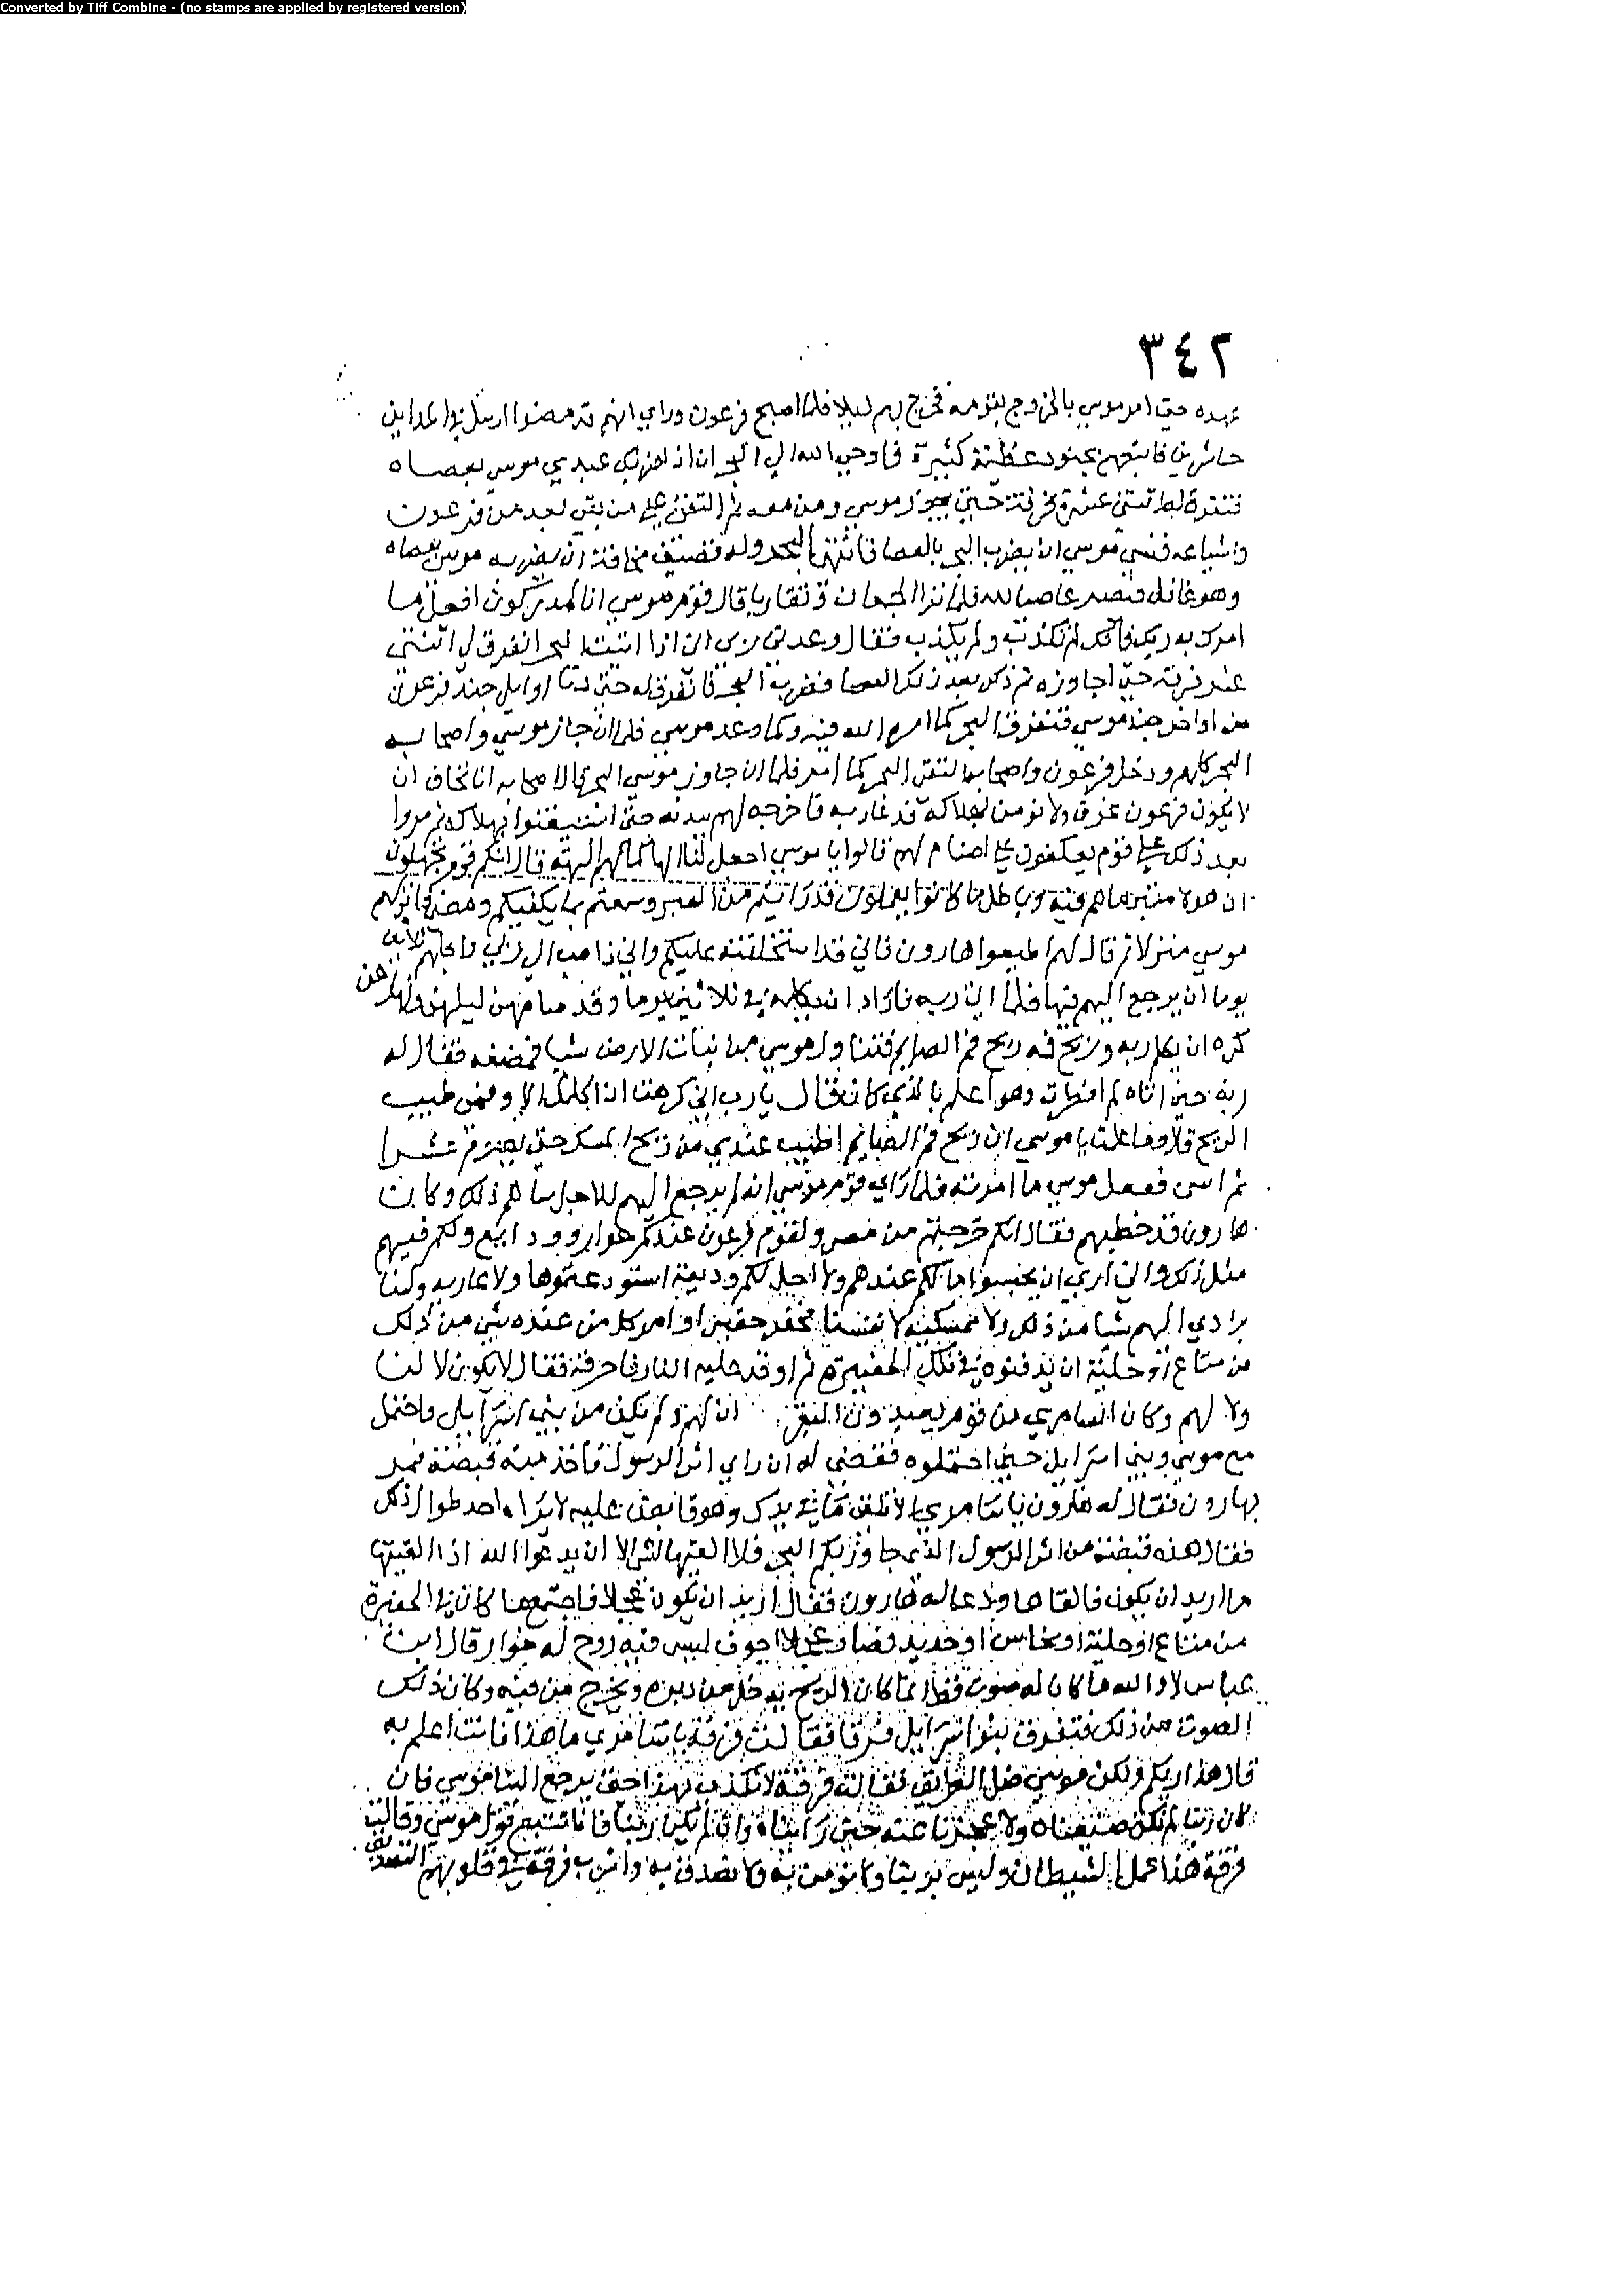 Converted by Tiff Combine - (no stamps are applied by registered version)
٣٤٢
عهده حتى امر موسى بالخروج بقومه فخرج بهم ليلا فلما اصبح فرعون وراى انهم قد مضوا ارسل في المداين
حاشرين فاتبعهم بجنود عظيمة كثيرة فاوحى الله الى البحر ان اذا ضربك عبدي موسى بعصاه
فتفرق اثنتي عشرة فرقة حتى يجوز موسى ومن معه ثم التق على من بقي بعد من فرعون
واشياعه فنسي موسى ان يضرب البحر بالعصا فانتهى البحر وله قصيف مخافة ان يضربه موسى بعصاه
وهو غافل فيصير عاصيا لله فلما تراا الجمعان وتقاربا قال قوم موسى انا لمدركون افعل ما
امرك به ربك فانك لم تكذب ولم يكذب فقال وعدني ربي ان اذا اتيت البحر انفرق لي اثنتى
عشر فرقة حتى اجاوزه ثم ذكر بعد ذلك العصا فضرب البحر فانفرق له حتى دنا اوايل جند فرعون
من اواخر جند موسى فتفرق البحر كما امره الله فيه وكما وعد موسى فلما ان جاز موسى واصحابه
البحر كلهم ودخل فرعون واصحابه التقى البحر كما امر فلما ان جاوز موسى البحر قالا صحابه انا نخاف ان
لا يكون فرعون غرق ولا نومن بهلاكه فدعا ربه فاخرجه لهم ببدنه حتى استيقنوا بهلاكه ثم مروا
بعد ذلك على قوم يعكفون على اصنام لهم قالوا يا موسى اجعل لنا الها كما لهم الهة قال انكم قوم تجهلون
ان هولا متبر ما هم فيه وباطل ما كانوا يعملون قد رايتم من العبر وسمعتم ما يكفيكم ومضى فانزلهم
موسى منزلا ثم قال لهم اطيعوا هارون فاني قد استخلفته عليكم واني ذاهب الى ربي واجلهم ثلاثين
يوما ان يرجع اليهم فيها فلما اتى ربه فاراد ان يكلمه في ثلاثين يوما وقد صامهن ليلهن ونهارهن
كره ان يكلم ربه وريح فيه ريح فم الصايم فتناول موسى من نبات الارض شيا فمضغه فقال له
ربه حين اتاه لم افطرت وهو اعلم بالذي كان فقال يا رب اني كرهت ان اكلمك الا وفمي طيب
الريح قال وما علمت يا موسى ان ريح فم الصايم اطيب عندي من ريح المسك حتى تصوم عشرا
ثم ائتني ففعل موسى ما امر به فلما راى قوم موسى انه لم يرجع اليهم للاجل ساهم ذلك وكان
هارون قد خطبهم فقال انكم خرجتم من مصر ولقوم فرعون عندكم عواري وودايع ولكم فيهم
مثل ذلك واني ارى ان تحتسبوا ما لكم عندهم ولا احل لكم وديعة استودعتموها ولا عارية ولسنا
برادي اليهم شيا من ذلك ولا ممسكيه لانفسنا فحفر حفيرا وامر كل من عنده شي من ذلك
من متاع او حلية ان يدفنوه في تلك الحفيرة ثم اوقد عليه النار فاحرقه فقال لا يكون لا لنا
ولا لهم وكان السامري من قوم يعبدون البقر لم يكن من بني اسرايل فاحتمل
مع موسى وبني اسرايل حين احتملوا فقضي له ان راى اثر الرسول فاخذ منه قبضة فمر
بهارون فقال له هارون يا سامري الا تلقي ما في يدك وهو قابض عليه لا يراه احد طوال ذلك
فقال هذه قبضة من اثر الرسول الذي جاوز بكم البحر فلا القيها لشي الا ان يدعوا الله اذا القيتها
ما اريد ان يكون فالقاها ودعا له هارون فقال اريد ان تكون عجلا فاجتمع ما كان في الحفيرة
من متاع او حلية او نحاس او حديد فصار عجلا اجوف ليس فيه روح له خوار قال ابن
عباس لا والله ما كان له صوت قط انما كان الريح يدخل من دبره ويخرج من فيه وكان ذلك
الصوت من ذلك فتفرق بنوا اسرايل فرقا فقالت فرقة يا سامري ما هذا فانت اعلم به
قال هذا ربكم ولكن موسى ضل الطريق فقالت فرقة لا نكذب بهذا حتى يرجع الينا موسى فان
كان ربنا لم نكن ضيعناه ولا عجزنا عنه حتى رايناه وان لم يكن ربنا فانا نتبع قول موسى وقالت
فرقة هذا عمل الشيطان وليس بربنا ولا نومن به ولا نصدق به واشرب فرقة في قلوبهم التصديق